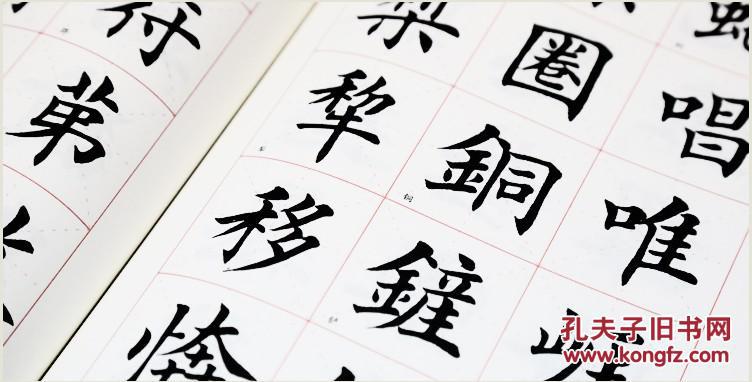 符
第
梨
犁
移
圈
銅
鏟
唱
唯
銅
孔夫子旧书网
www.kongfz.com